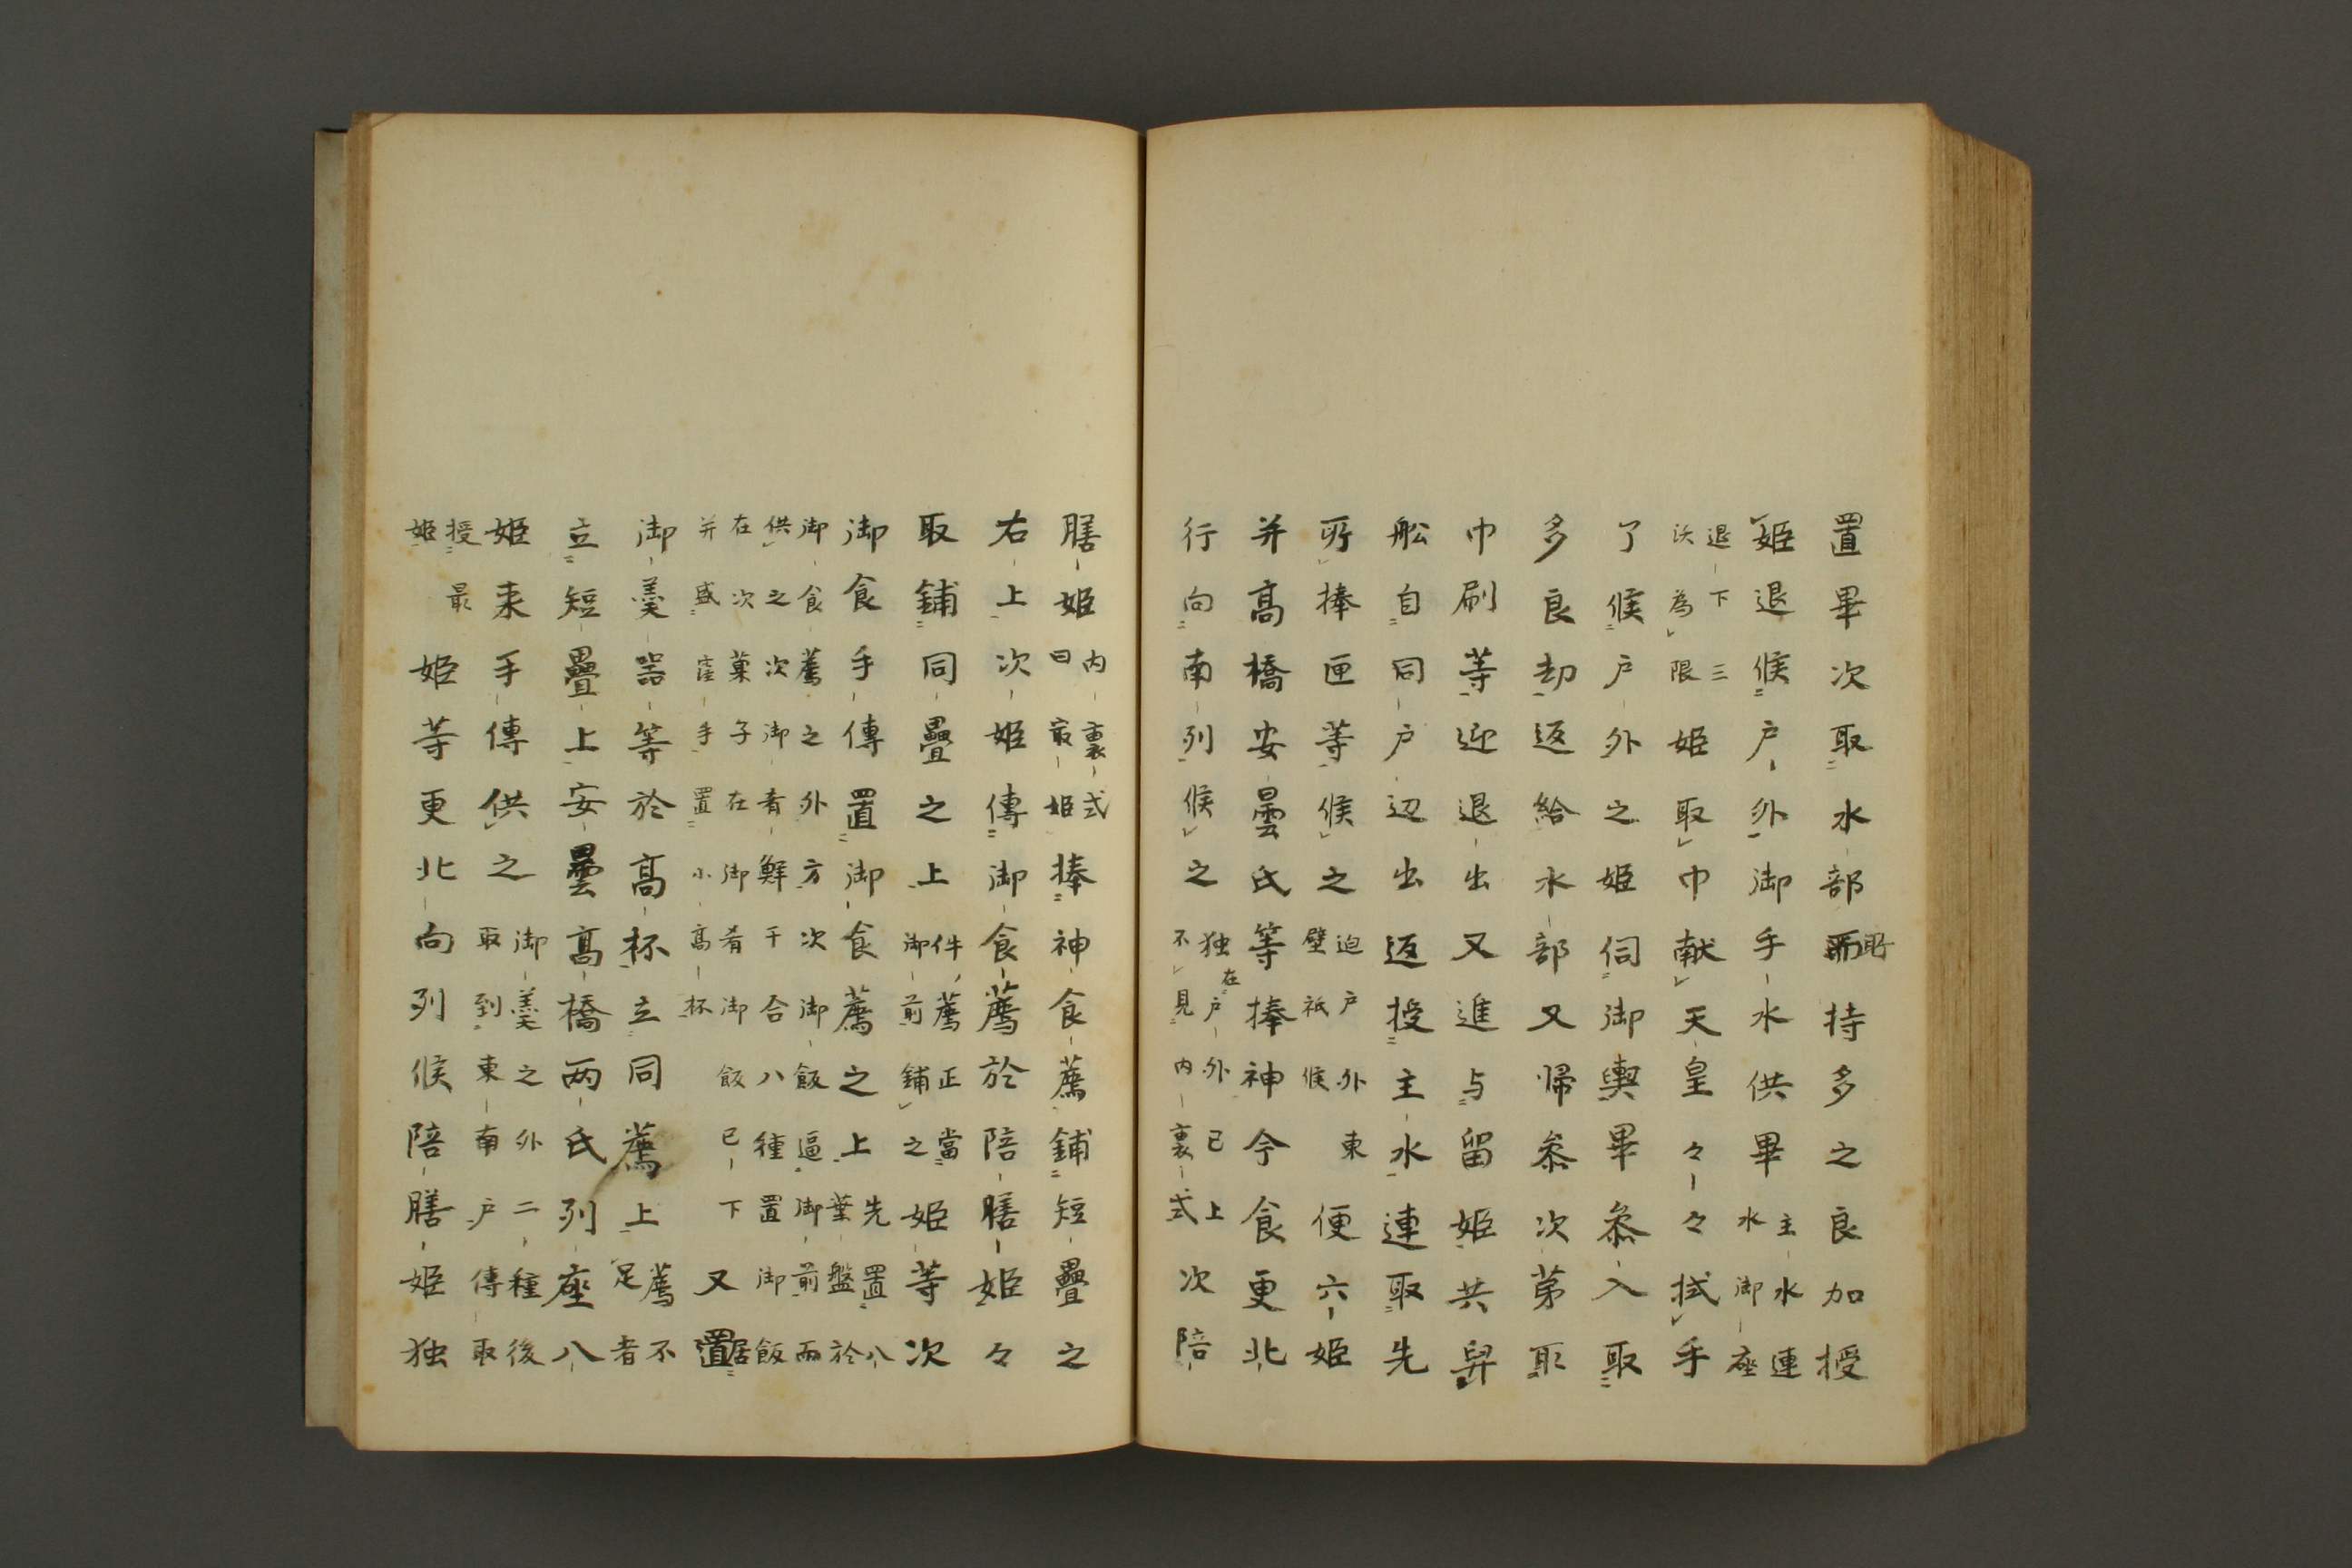 置畢次取水部所持多之良加授
姫退候戸外御手水供畢主水連水御座
退下三沃為限姫取巾献天皇々々拭手
了候戸外之姫伺御輿畢参入取
多良却返給水部又帰参次第取
巾刷等迎退出又進与留姫共舁
舩自同戸辺出返授主水連取先
所捧匣等候之迫戸外東壁祗候便六姫
并高橋安曇氏等捧神今食更北
行向南列候之独在戸外已上不見内裏式次陪
膳姫内裏式曰最姫捧神食薦鋪短疊之
右上次姫傳御食薦於陪膳姫々
取鋪同疊之上件薦正當御前鋪之姫等次
御食手傳置御食薦之上先置八葉盤於
御食薦之外方次御飯逼御前而
供之次御肴鮮干合八種置御飯
在次菓子在御肴御飯已下又置居
并盛窪手置小高杯
御羹器等於高杯立同薦上薦不足者
立短疊上安曇高橋両氏列座八
姫来手傳供之御羹之外二種後取到東南戸傳取
授姫最姫等更北向列候陪膳姫独